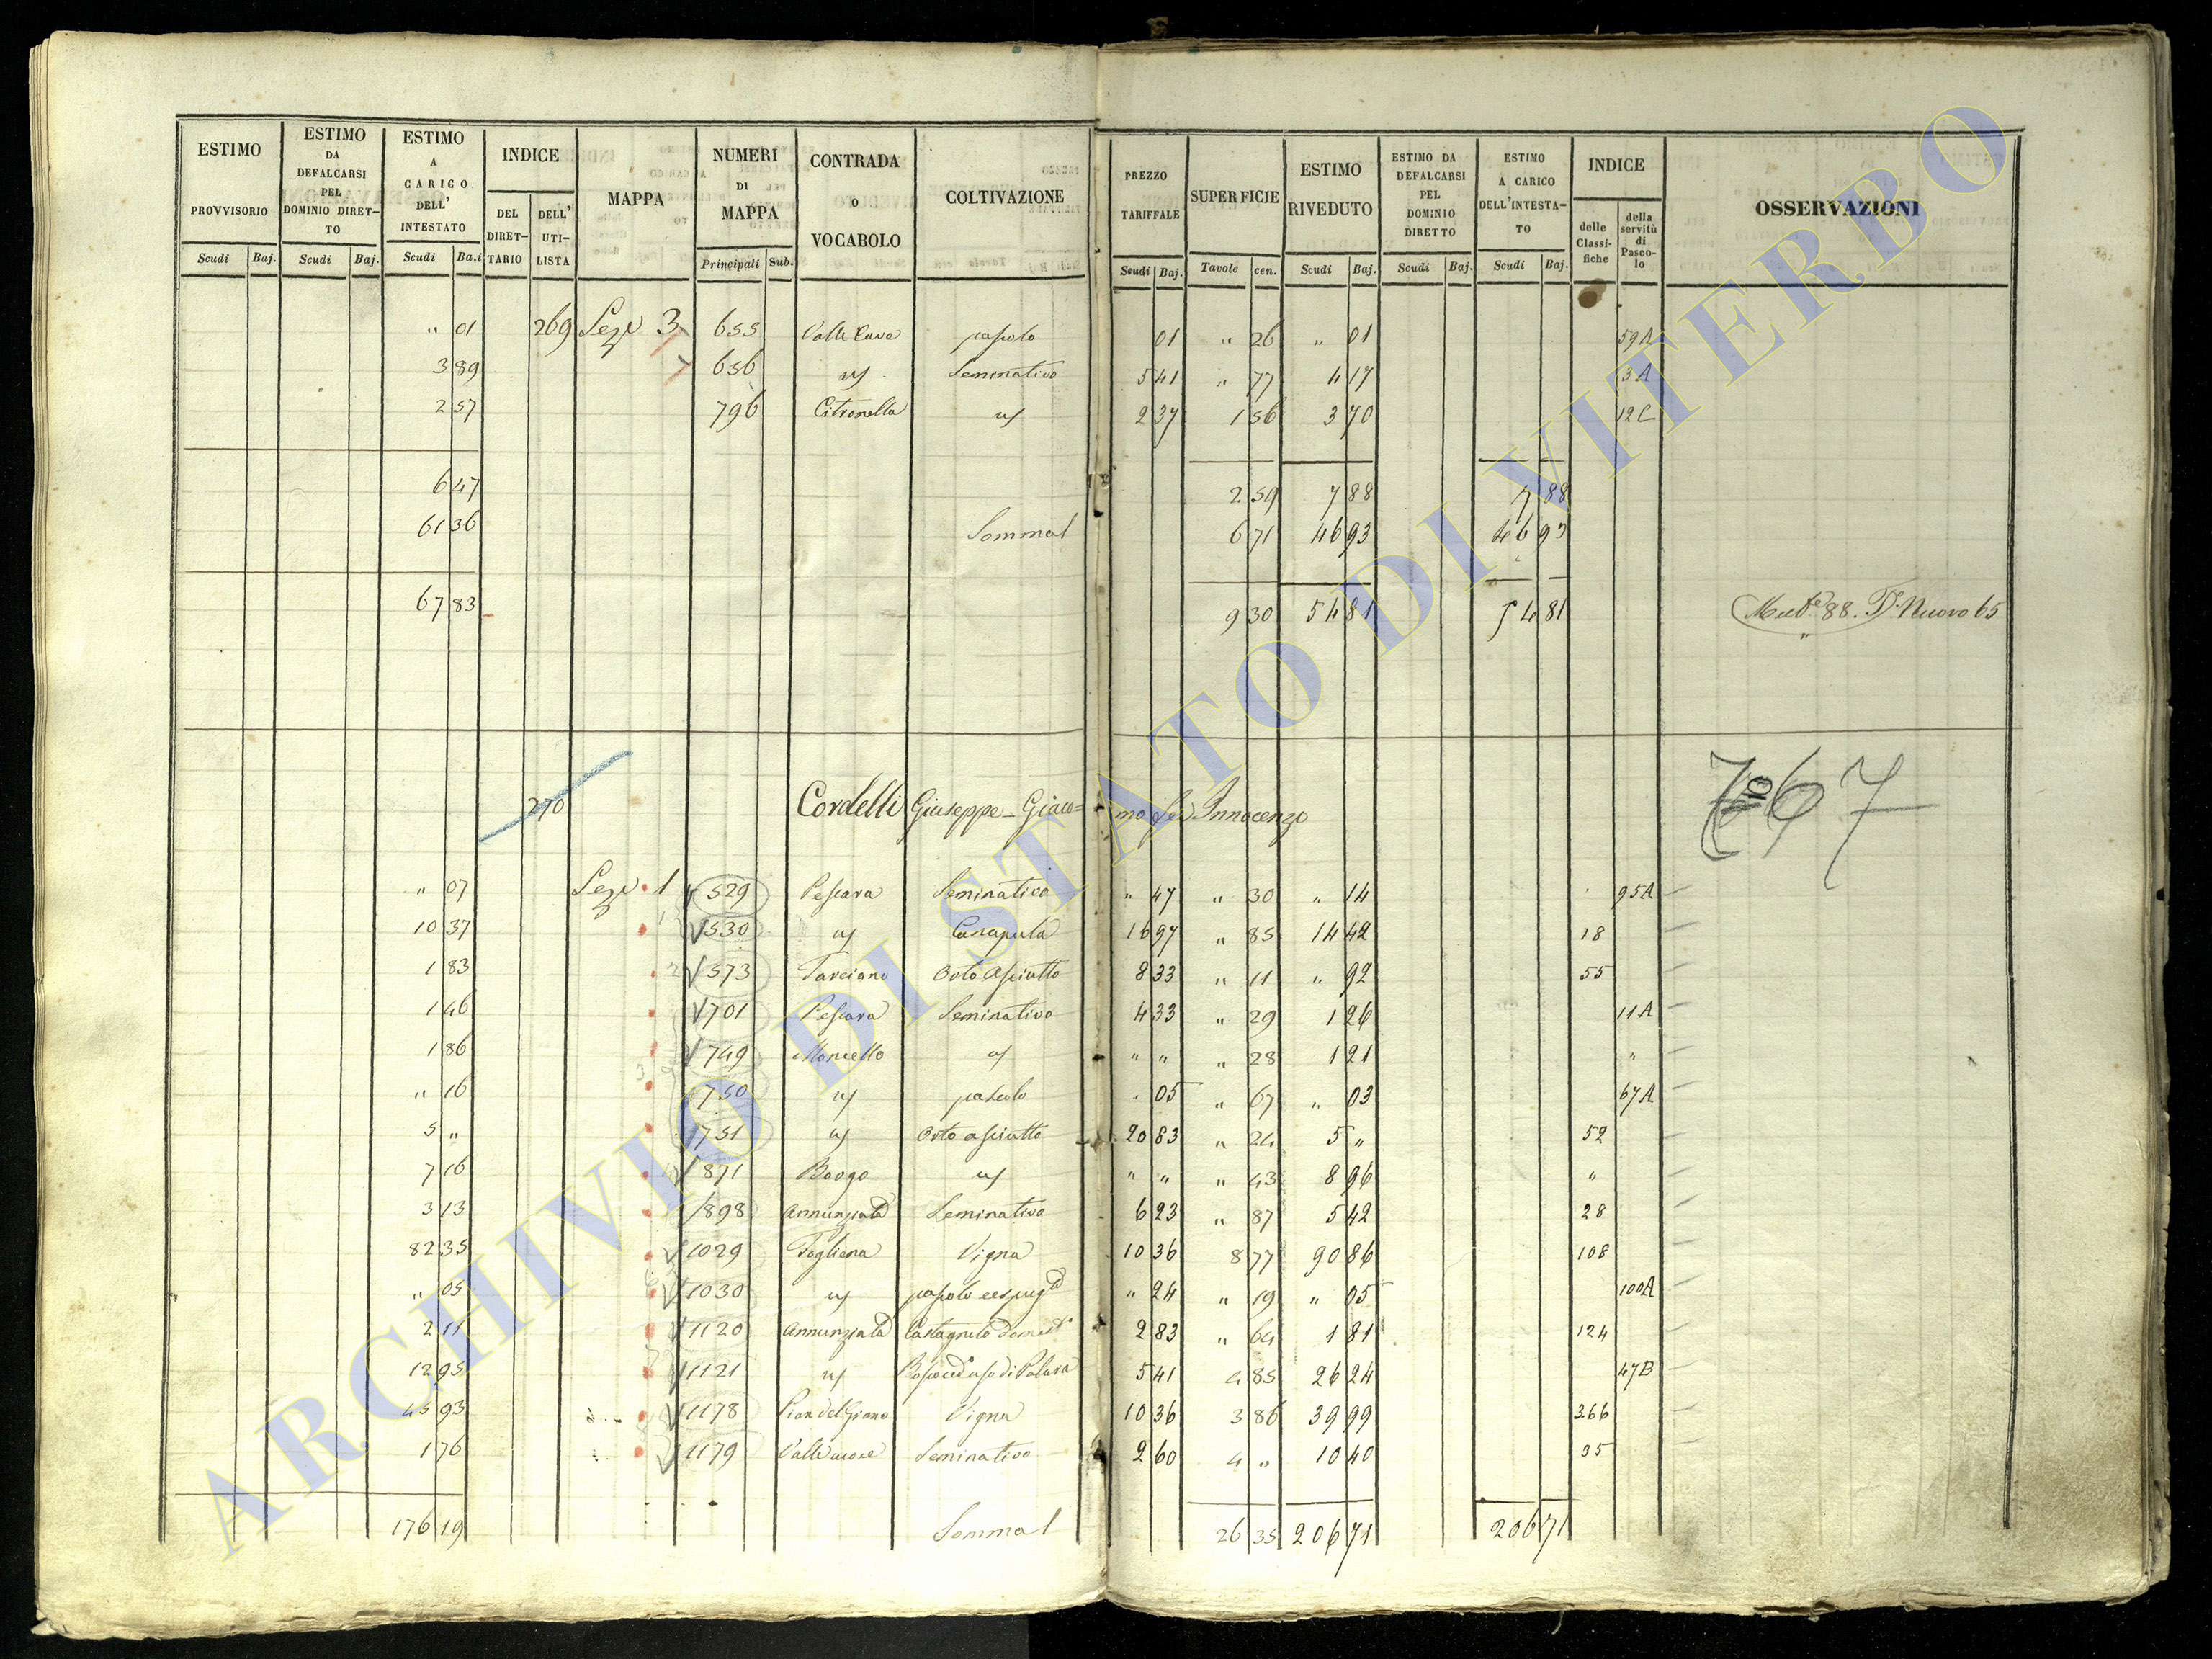 ESTIMO PROVVISORIO Scudi Baj.
ESTIMO DA DEFALCARSI PEL DOMINIO DIRET-TO Scudi Baj.
ESTIMO A CARICO DELL' INTESTATO Scudi Ba.i
INDICE DEL DIRET-TARIO DELL' UTI-LISTA
MAPPA
NUMERI DI MAPPA Principali Sub.
CONTRADA O VOCABOLO
COLTIVAZIONE
PREZZO TARIFFALE Scudi Baj.
SUPERFICIE Tavole cen.
ESTIMO RIVEDUTO Scudi Baj.
ESTIMO DA DEFALCARSI PEL DOMINIO DIRETTO Scudi Baj.
ESTIMO A CARICO DELL'INTESTA-TO Scudi Baj.
INDICE delle Classi-fiche della servitù di Pasco-lo
OSSERVAZIONI
" 01 269 Sez. 3 655 Valle Cave pascolo 01 " 26 " 01 59A
3 89 656 " Seminativo 5 41 " 77 4 17 3A
2 57 796 Citronella " 2 37 1 56 3 70 12C
6 47 2 59 7 88 7 88
61 36 Somma 6 71 46 93 46 93
67 83 9 30 54 81 54 81 88. Nuovo 65
270 Cordelli Giuseppe-Giaco= mo Innocenzo 67
" 07 Sez. 1 529 Pescara Seminativo " 47 " 30 " 14 95A
10 37 530 " Canapula 16 97 " 85 14 42 18
1 83 573 Tarciano Orto asciutto 8 33 " 11 " 92 55
1 46 701 Pescara Seminativo 4 33 " 29 1 26 11A
1 86 749 Moncello " " " " 28 1 21 "
" 16 750 " pascolo 05 " 67 " 03 67A
5 " 751 " Orto asciutto 20 83 " 24 5 " 52
7 16 871 Borgo " " " " 43 8 96 "
3 13 898 Annunziata Seminativo 6 23 " 87 5 42 28
82 35 1029 Fogliena Vigna 10 36 8 77 90 86 108
" 05 1030 " pascolo " 24 " 19 " 05 100A
2 11 1120 Annunziata Castagneto 2 83 " 64 1 81 124
12 95 1121 " 5 41 4 85 26 24 47B
45 93 1178 Vigna 10 36 3 86 39 99 266
1 76 1179 Seminativo 2 60 4 " 10 40 35
176 19 Somma 26 35 206 71 206 71
ARCHIVIO DI STATO DI VITERBO